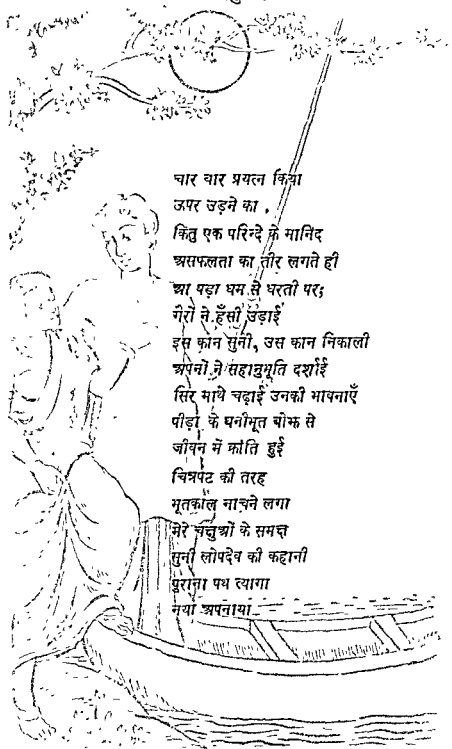 बार बार प्रयत्न किया
ऊपर उड़ने का ,
किंतु एक परिन्दे के मानिंद
असफलता का तीर लगते ही
आ पड़ा धम से धरती पर;
गैरों ने हँसी उड़ाई
इस कान सुनी, उस कान निकाली
अपनों ने सहानुभूति दर्शाई
सिर माथे चढ़ाई उनकी भावनाएँ
पीड़ा के घनीभूत बोझ से
जीवन में क्रांति हुई
चित्रपट की तरह
भूतकाल नाचने लगा
मेरे चक्षुओं के समक्ष
सुनी लोपदेव की कहानी
पुराना पथ त्यागा
नया अपनाया